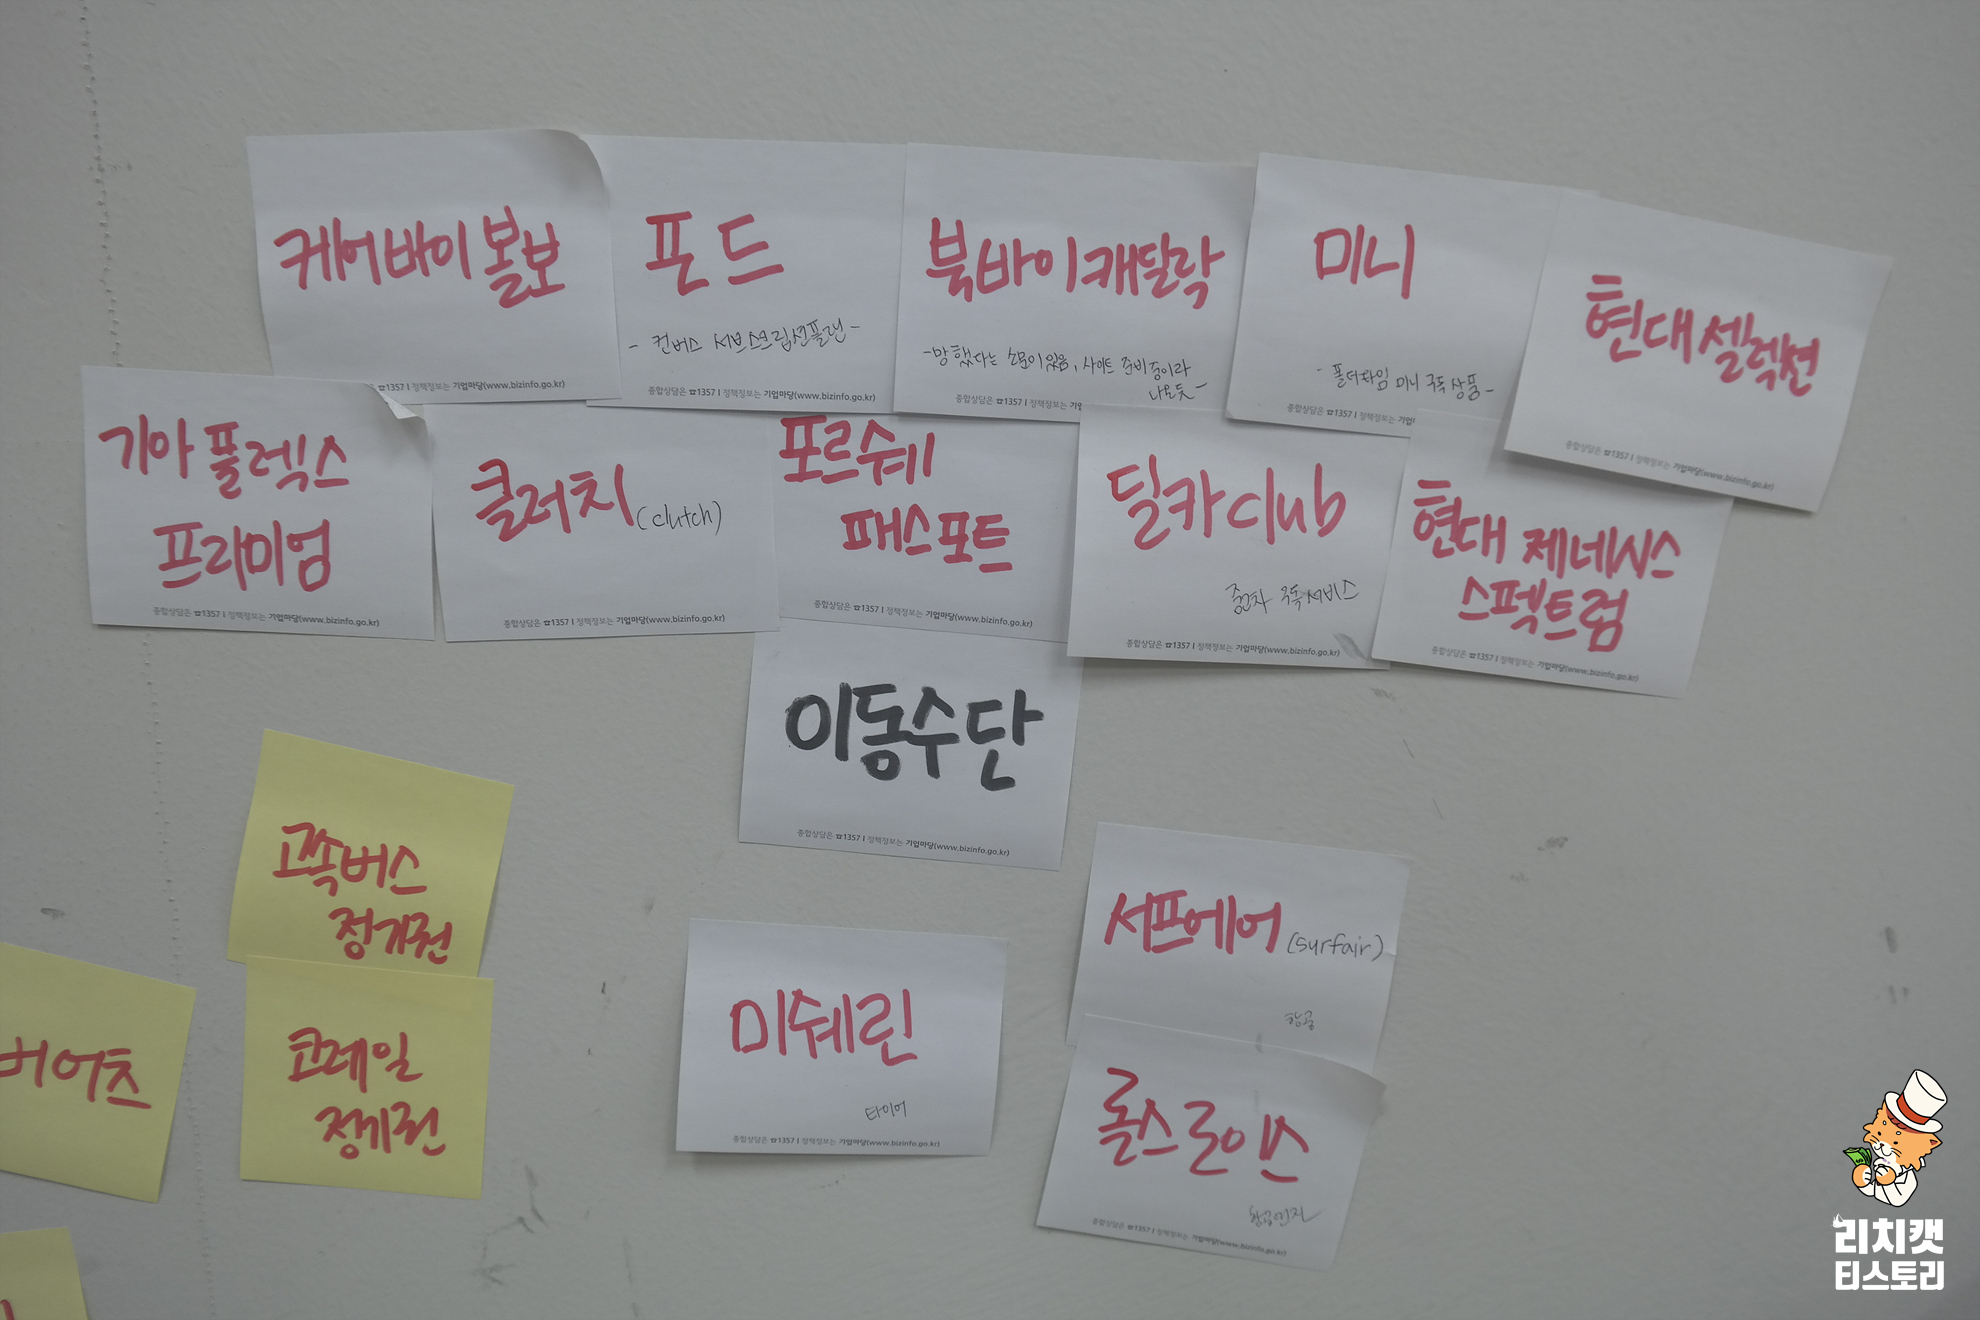 케어바이볼보
종합상담은 ☎1357 I 정책정보는 기업마당(www.bizinfo.go.kr)
포드
- 컨버스 서브스크립션플랜 -
종합상담은 ☎1357 I 정책정보는 기업마당(www.bizinfo.go.kr)
북바이캐딜락
-망했다는 소문이 있음, 사이트 준비중이라
나오듯-
종합상담은 ☎1357 I 정책정보는 기업
미니
- 풀더타임 미니 구독 상품 -
종합상담은 ☎1357 I 정책정보는 기업
현대 셀렉션
종합상담은 ☎1357 I 정책정보는 기업마당(www.bizinfo.go.kr)
기아 플렉스
프리미엄
종합상담은 ☎1357 I 정책정보는 기업마당(www.bizinfo.go.kr)
클러치(clutch)
종합상담은 ☎1357 I 정책정보는 기업마당(www.bizinfo.go.kr)
포르쉐
패스포트
종합상담은 ☎1357 I 정책정보는 기업마당(www.bizinfo.go.kr)
딜카club
중고차 구독서비스
종합상담은 ☎1357 I 정책정보는 기업마당(www.bizinfo.go.kr)
현대 제네시스
스펙트럼
종합상담은 ☎1357 I 정책정보는 기업마당(www.bizinfo.go.kr)
이동수단
종합상담은 ☎1357 I 정책정보는 기업마당(www.bizinfo.go.kr)
고속버스
정기권
버어츠
코레일
정기권
미쉐린
타이어
종합상담은 ☎1357 I 정책정보는 기업마당(www.bizinfo.go.kr)
서프에어(surfair)
항공
롤스로이스
항공엔진
종합상담은 ☎1357 I 정책정보는 기업마당(www.bizinfo.go.kr)
리치캣
티스토리